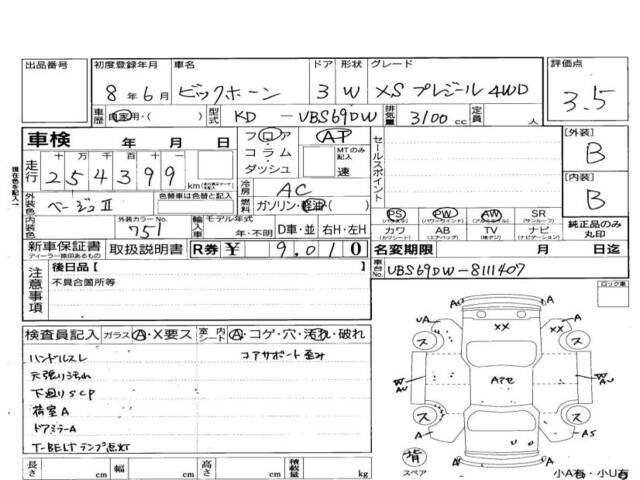 出品番号 初度登録年月 車名 ドア 形状 グレード 評価点
8年6月 ビックホーン 3 W XS プレジール 4WD 3.5
車歴 自家用・( ) 型式 KD - UBS69DW 排気量 3100 cc 定員 人
車検 年 月 日 フロア・コラム・ダッシュ AT MTのみ記入 速 セールスポイント [外装] B
走行 十 万 千 百 十 一
254399 km
冷房 AC [内装] B
外装色 ベージュII 色替車は色替と記入 燃料 ガソリン・軽油( )
PS PW AW SR
(パワステ) (パワーウインド) (アルミホイル) (サンルーフ)
内装色 外装カラーNo. 751 輸入車 モデル年式 年・不明 D車・並 右H・左H カワ AB TV ナビ 純正品のみ丸印
(カワシート) (エアバッグ) (地デジ) (ナビゲーション)
新車保証書 取扱説明書 R券 ¥ 9,010 名変期限 月 日迄
ディーラー捺印あるもの
車台No. UBS69DW-8111407
現在色を記入
注意事項 後日品 [
不具合箇所等
ロック車
検査員記入 ガラス A・X要ス 室内 シート A・コゲ・穴・汚れ・破れ
ハンドルスレ コアサポート歪み
天張り汚れ
下廻りSCP
荷室A
ドアミラーA
T-BELTランプ点灯
UA XX A
ス ス
W AU Aアセ W AU
ス ス
A U A AS
背 スペア A A
長さ cm 幅 cm 高さ cm 積載量 kg 小A有・小U有